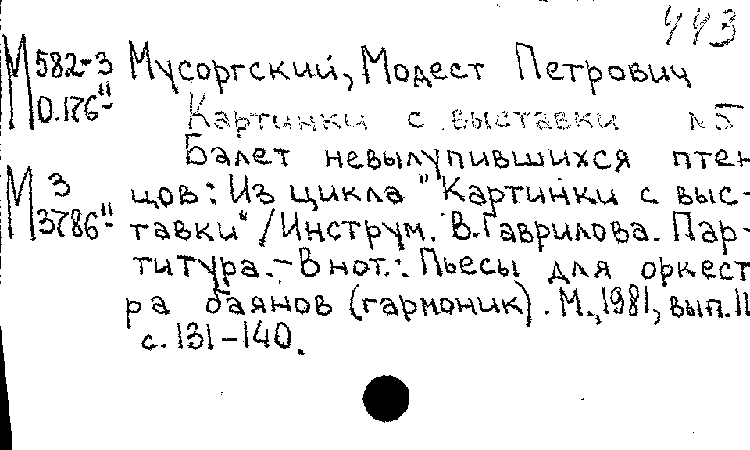 443
М 582-3 Мусоргский, Модест Петрович
0.176" Картинки с выставки №5
Балет невылупившихся птен-
М 3 цов: Из цикла "Картинки с выс-
3786" тавки" / Инструм. В. Гаврилова. Пар-
титура. - В нот.: Пьесы для оркест
ра баянов (гармоник). М., 1981, вып. 11
с. 131-140.